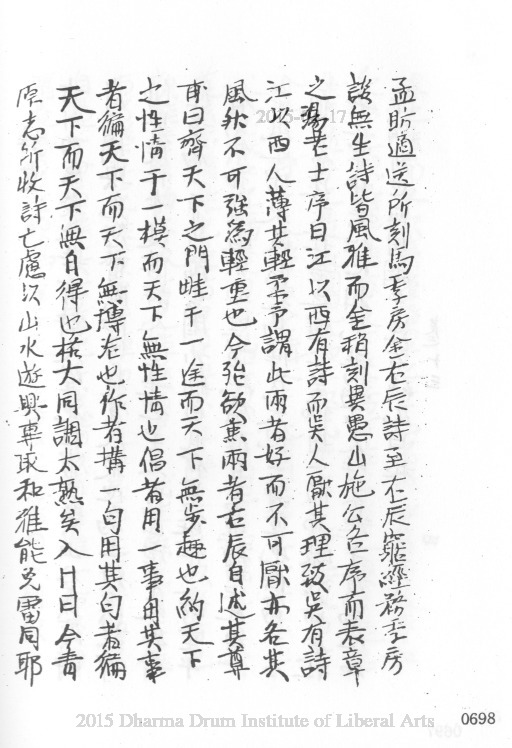 孟昉適送所刻馬季房金右辰詩至右辰寵逕務季房
談無生詩皆風雅而金稍刻異愚山施公各序而表章
之湯老士序曰江以西有詩而吳人厭其理致吳有詩
江以西人薄其輕柔予謂此兩者好而不可厭亦各其
風然不可強為輕重也今殆欲兼兩者右辰自述其尊
甫曰齊天下之門畦于一途而天下無步趣也約天下
之性情于一模而天下無性情也倡者用一事用其事
者徧天下而天下無博左也作者搆一句用其句者徧
天下而天下無自得也格大同調太熟矣入廿曰今青
原志所收詩亡慮以山水遊興專取和雅能免雷同耶
2015 Dharma Drum Institute of Liberal Arts
0698